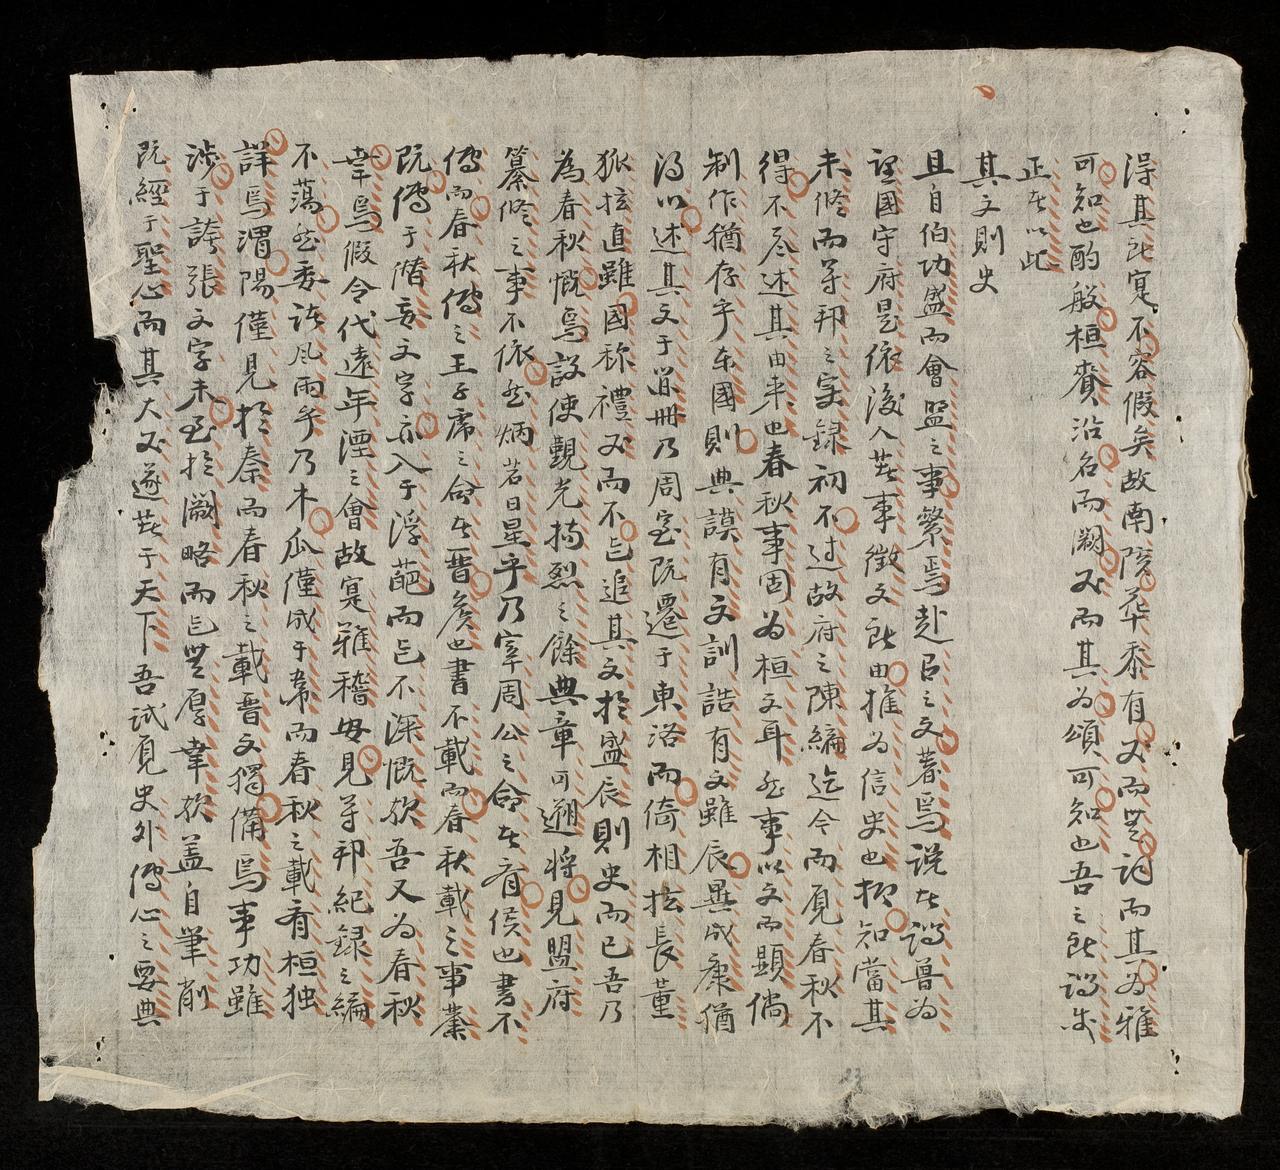 得其所寔不容假矣故南陔華黍有又而無詞而其為雅
可知也酌般桓賚沿名而闕又而其為頌可知也吾之所謂
正在以此
其文則史
且自伯功盛而會盟之事繁焉赴告之文著焉説在謂魯為
望國守府是依後人其事徵文所由推為信史也抑知當其
未修而等邦之実録初不过故府之陳編迄今而覓春秋不
得不尽述其由来也春秋事固為桓文耳然事以文而顯倘
制作猶存乎东國則典謨有文訓誥有文雖辰異成康猶
得以述其文于冊乃周室既遷于東洛而倚相抗長董
狐抗直雖國称禮又而不忘追其文於盛辰則史而已吾乃
為春秋慨焉設使觀光揚烈之餘典章可遡將見盟府
纂修之事不依然炳若日星乎乃宰周公之命在有侯也書不
傳而春秋傳之王子席之命在晋矣也書不載而春秋載之事業
既傳于僭妄文字亦入于浮葩而已不深慨欤吾又为春秋
幸焉假令代遠年湮之會故寔难稽毋見等邦紀録之編
不蕩然委諸风雨乎乃木瓜僅咸于衛而春秋之載有桓独
詳焉渭陽僅見於秦而春秋之載晋文獨備焉事功雖
涉于誇張文字未至於闕略而已無厚幸欤盖自筆削
既經于聖心而其大又遂其于天下吾試覓史外傳心之要典